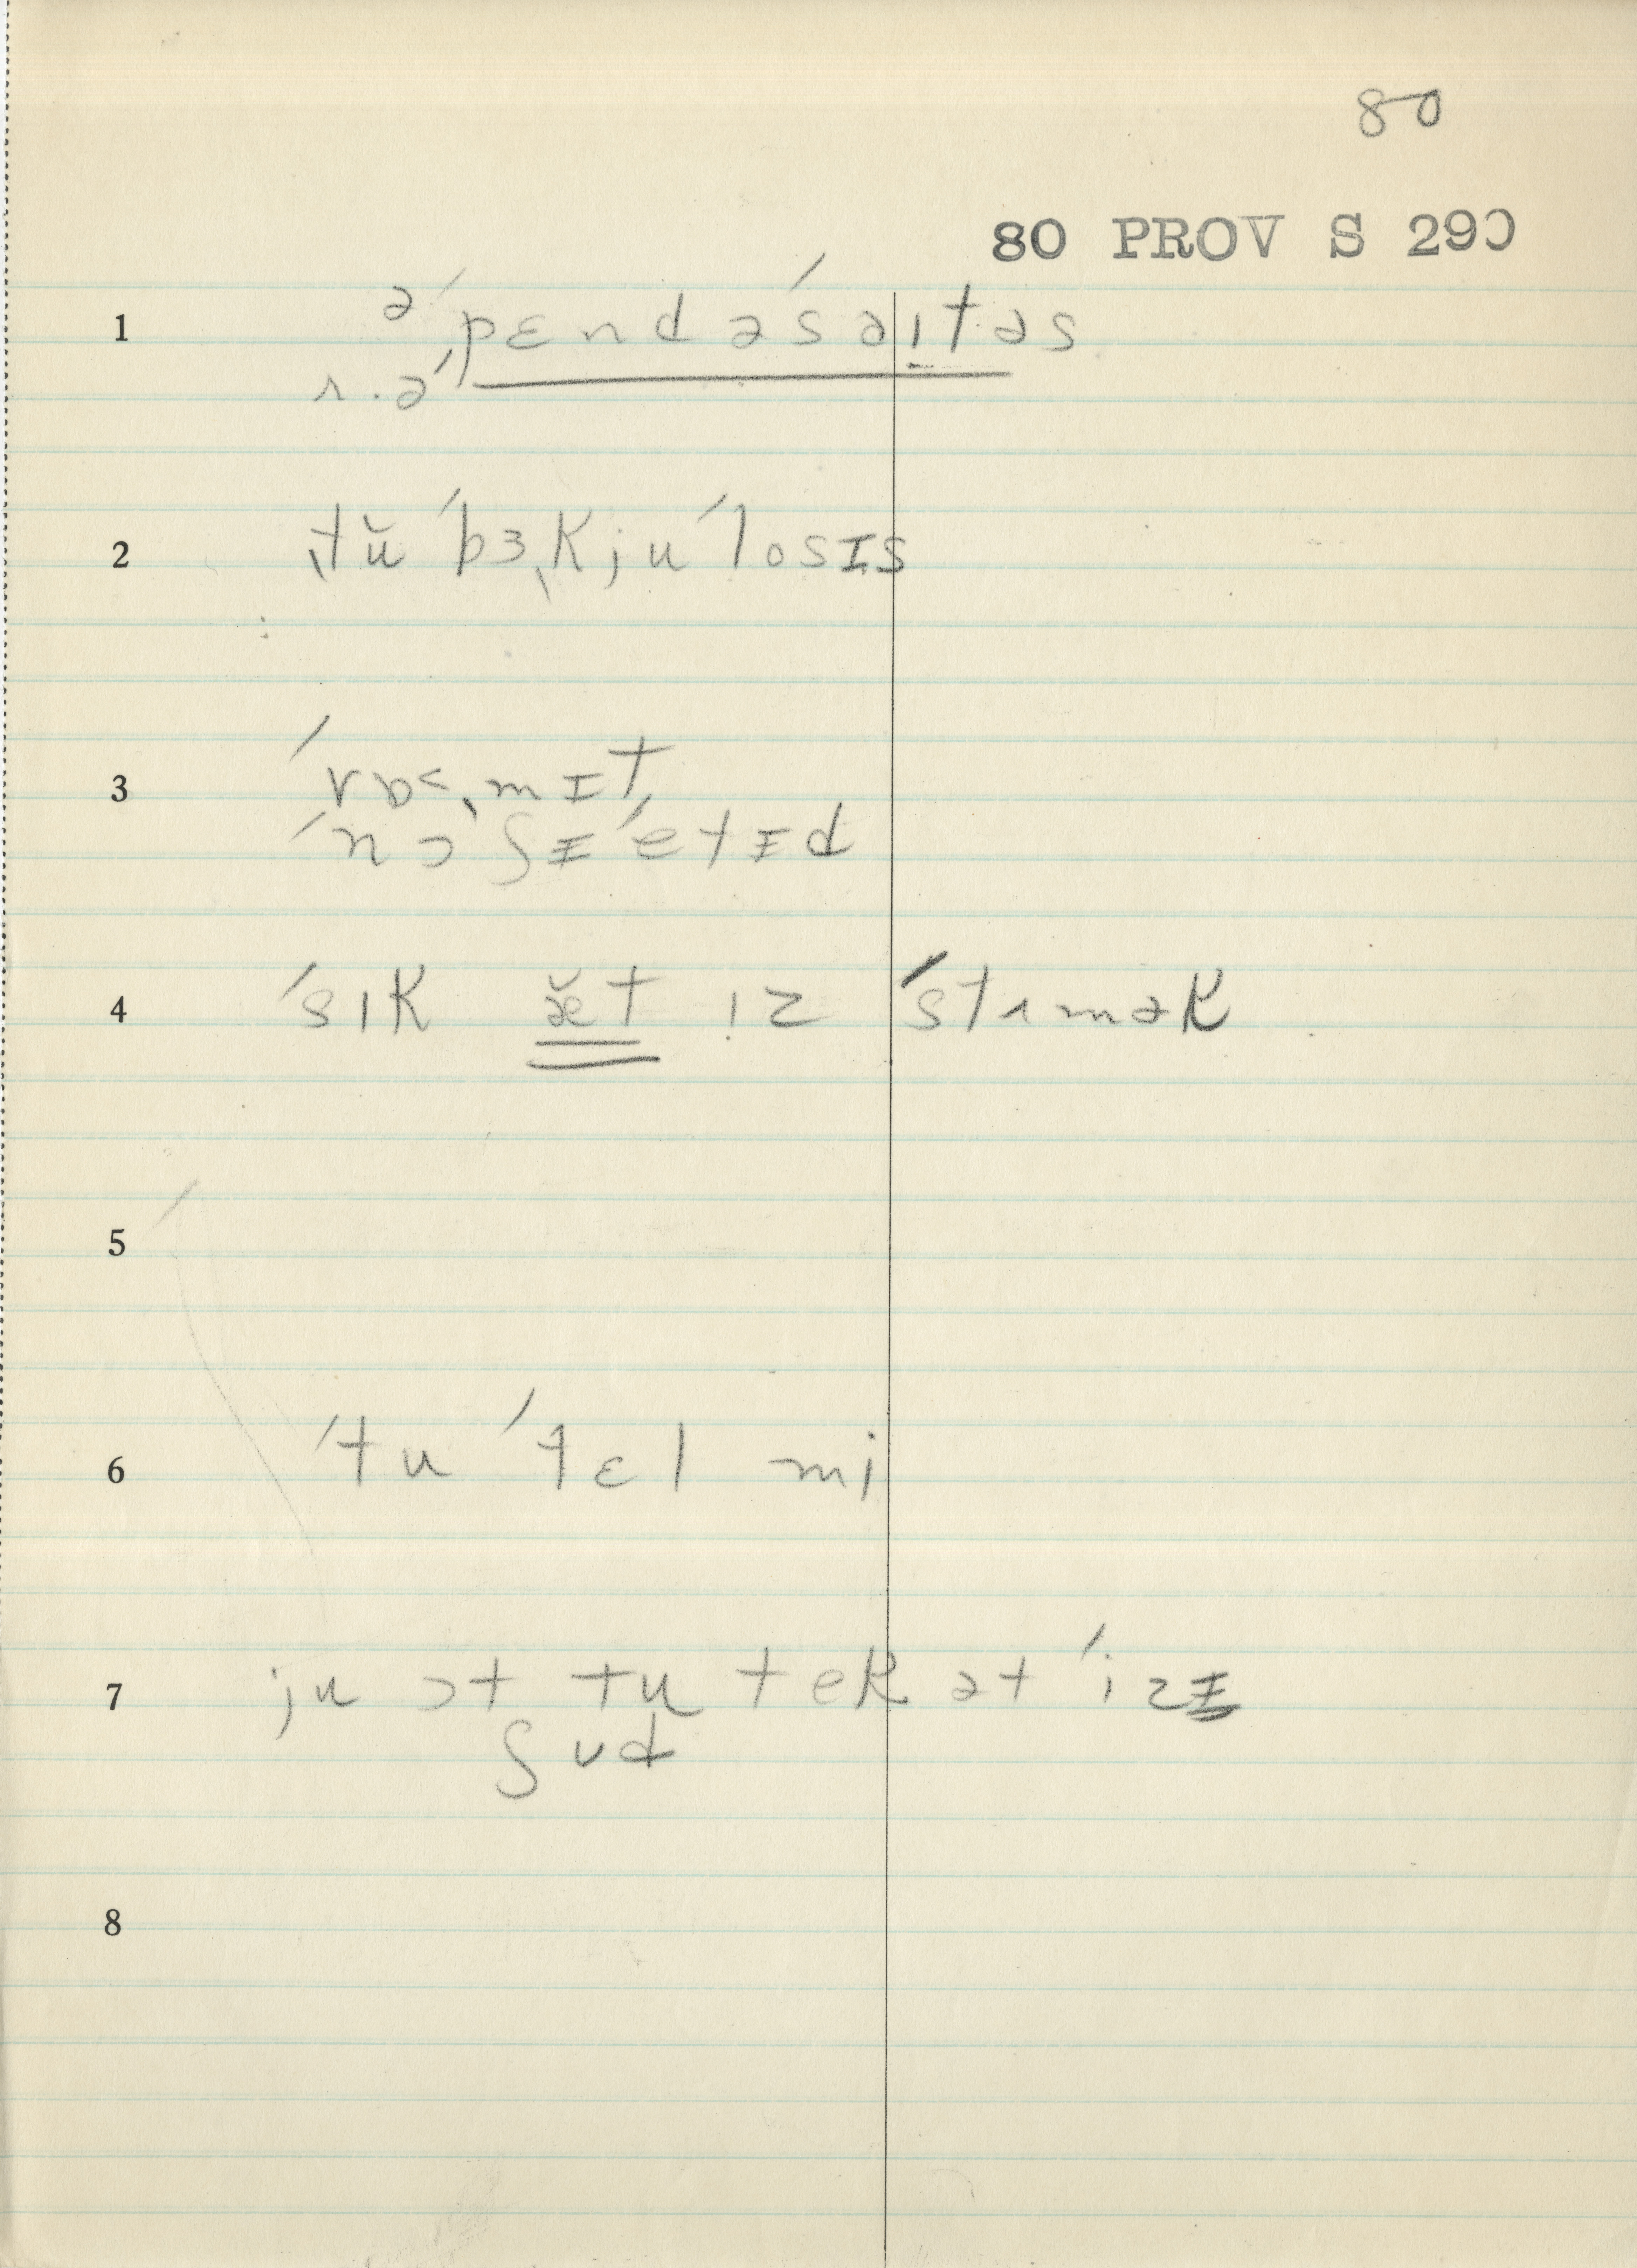 80
80 PROV S 290
1 ə ˈpɛndəˈsəɪtəs
r.ə
2 ˌtŭˈbɜˌkjuˈlosɪs
3 ˈvɒˌmɪt
ˈnɔʃɪˈetɪd
4 ˈsɪk æ̆t ɪz ˈstʌmək
5
6 ˈtu ˈtɛl mi
7 ju ɔt tu tek ət ˈizɪ
ʃʊd
8